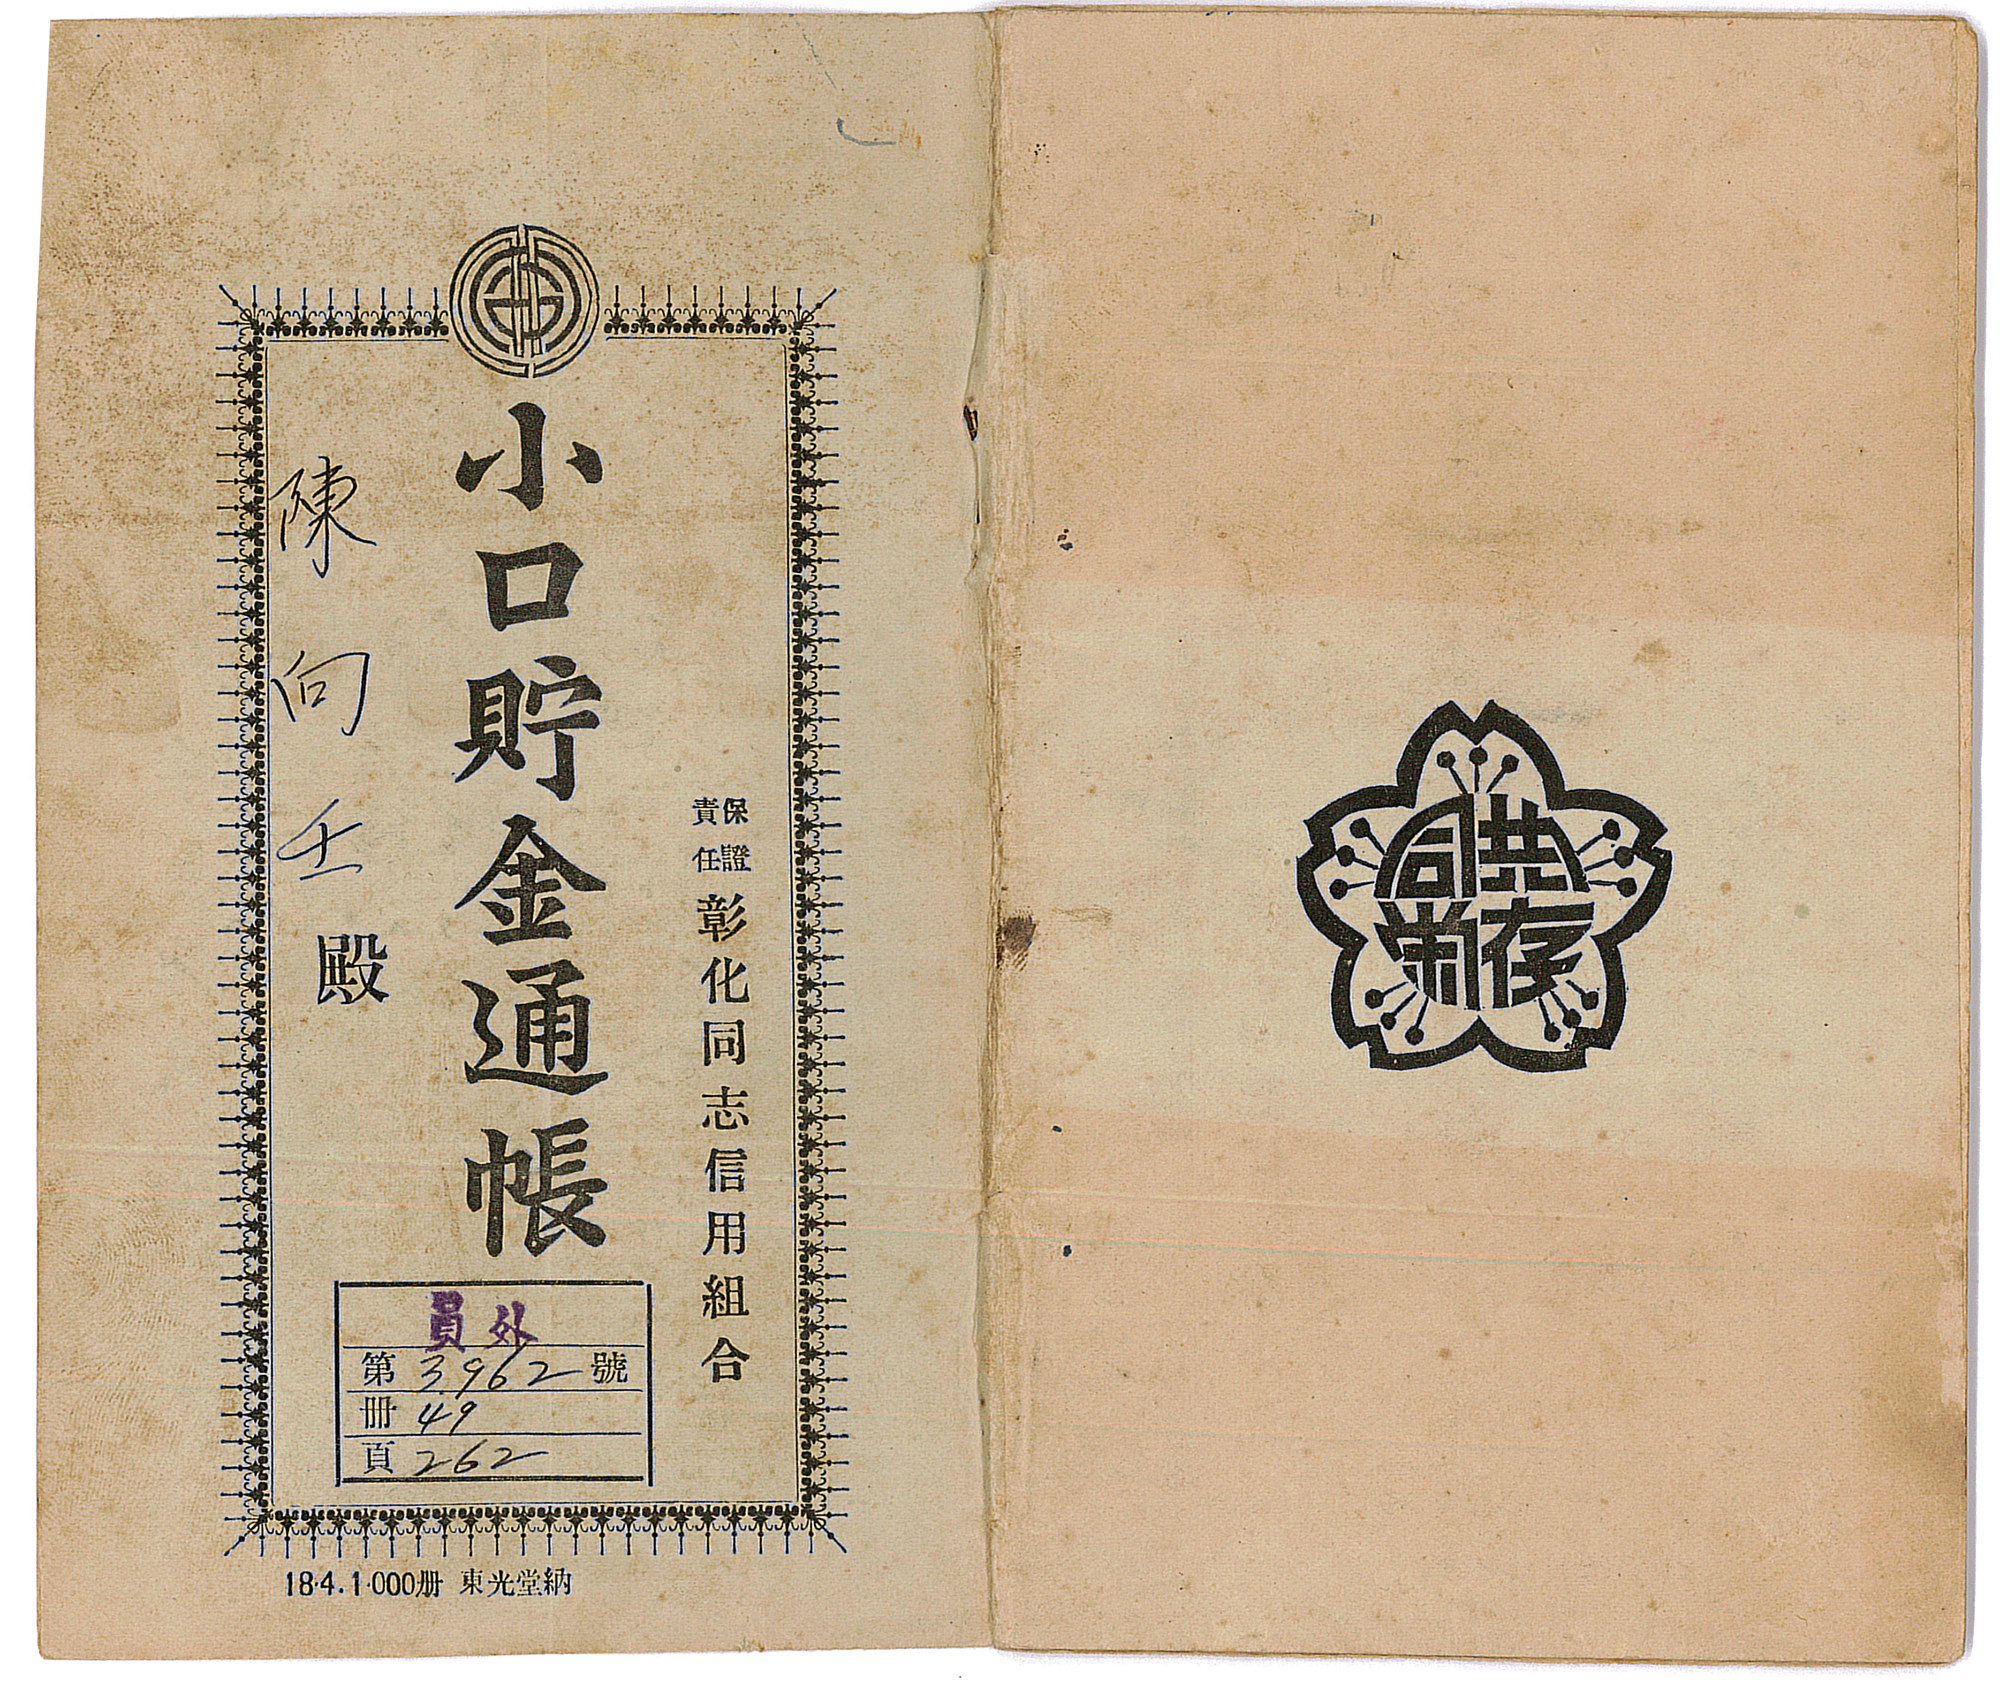 共存
同榮
保證
責任
彰化同志信用組合
小口貯金通帳
陳向壬殿
員外
第3962號
冊49
頁262
18·4.1·000册 東光堂納